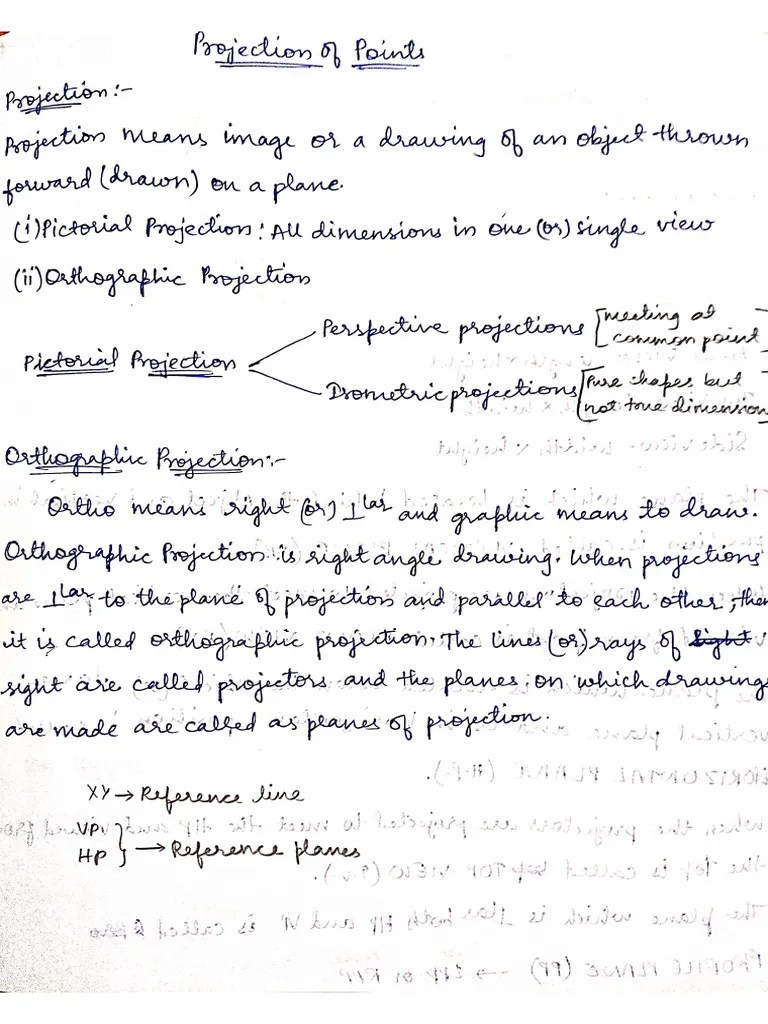 Projection of Points
Projection:-
Projection means image or a drawing of an object thrown
forward (drawn) on a plane.
(i) Pictorial Projection: All dimensions in one (or) single view
(ii) Orthographic Projection
Perspective projections [meeting at
common point
Pictorial Projection
Isometric projections [Pure shapes but
not true dimension
Orthographic Projection:-
Ortho means right (or) ⊥lar and graphic means to draw.
Orthographic Projection is right angle drawing. When projections
are ⊥lar to the plane of projection and parallel to each other, then
it is called orthographic projection. The lines (or) rays of
sight are called projectors and the planes on which drawings
are made are called as planes of projection.
XY → Reference line
VP
HP } → Reference planes